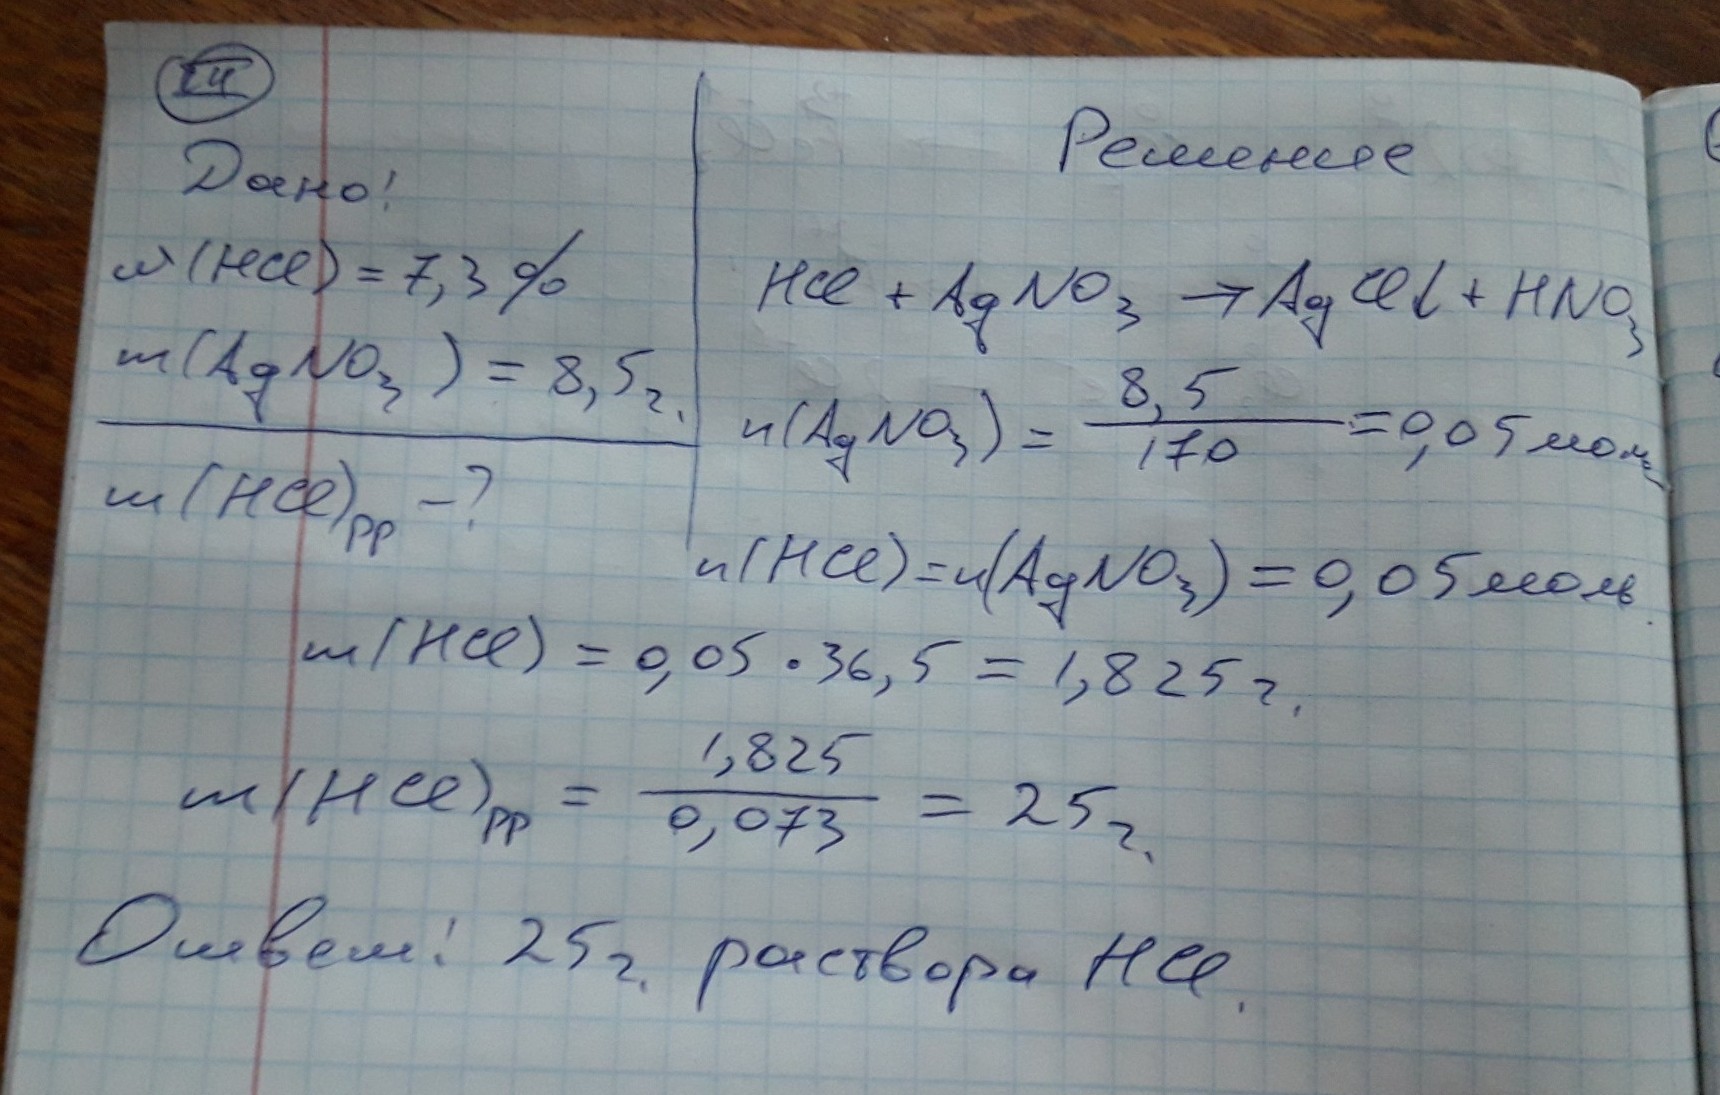 14
Дано:
w(HCl) = 7,3 %
m(AgNO₃) = 8,5 г.
m(HCl)рр – ?
Решение
HCl + AgNO₃ → AgCl↓ + HNO₃
n(AgNO₃) = 8,5/170 = 0,05 моль
n(HCl) = n(AgNO₃) = 0,05 моль
m(HCl) = 0,05 · 36,5 = 1,825 г.
m(HCl)рр = 1,825/0,073 = 25 г.
Ответ: 25 г. раствора HCl.